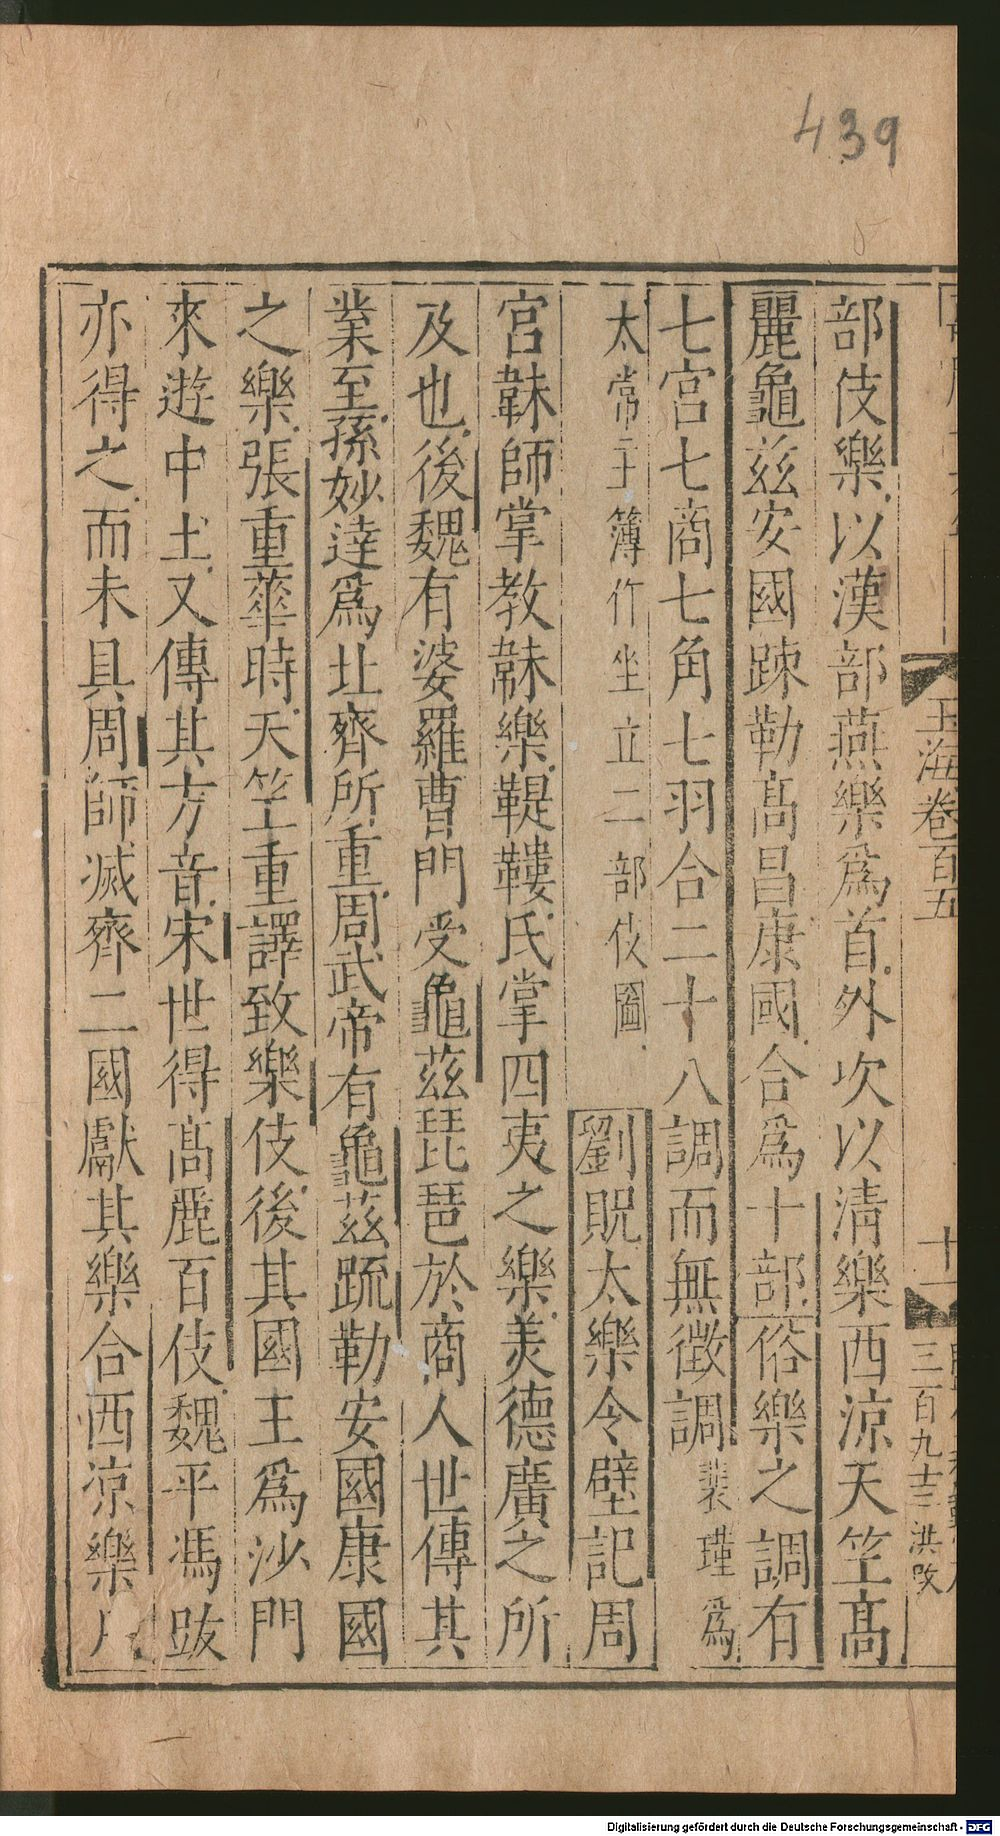 439
玉海卷百五
十一
三百九十三 洪改
部伎樂以漢部燕樂爲首外次以清樂西涼天竺高
麗龜兹安國踈勒高昌康國合爲十部俗樂之調有
七宮七商七角七羽合二十八調而無徴調裴瑾爲
太常主簿作坐立二部伎圖劉貺太樂令壁記周
官韎師掌教韎樂鞮鞻氏掌四夷之樂美德廣之所
及也後魏有婆羅曹門受龜兹琵琶於商人世傳其
業至孫妙達爲北齊所重周武帝有龜兹疏勒安國康國
之樂張重華時天竺重譯致樂伎後其國王爲沙門
來遊中土又傳其方音宋世得高麗百伎魏平馮跋
亦得之而未具周師滅齊二國獻其樂合西凉樂凡
Digitalisierung gefördert durch die Deutsche Forschungsgemeinschaft - DFG